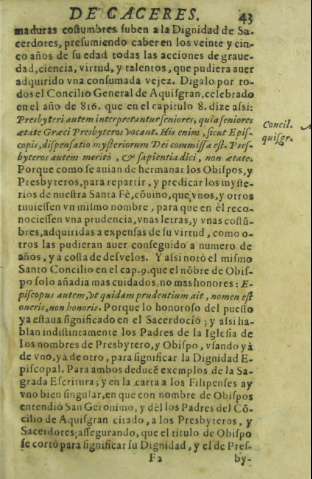 DE CACERES. 43
maduras costumbres suben a la Dignidad de Sa-
cerdotes, presumiendo caber en los veinte y cin-
co años de su edad todas las acciones de graue-
dad, ciencia, virtud, y talentos, que pudiera auer
adquirido vna consumada vejez. Digalo por to-
dos el Concilio General de Aquisgran, celebrado
en el año de 816. que en el capitulo 8. dize assi:
Presbyteri autem interpretantur seniores, quia seniores
ætate Græci Presbyteros vocant. His enim, sicut Epis-
copis, dispensatio mysteriorum Dei commissa est. Pres-
byteros autem merito, & sapientia dici, non ætate.
Concil.
quisgr.
Porque como se auian de hermanar los Obispos, y
Presbyteros, para repartir, y predicar los myste-
rios de nuestra Santa Fè, cõuino, que vnos, y otros
tuuiessen vn mismo nombre, para que en èl reco-
nociessen vna prudencia, vnas letras, y vnas costũ-
bres, adquiridas a expensas de su virtud, como o-
tros las pudieran auer conseguido a numero de
años, y a costa de desvelos. Y assi notò el mismo
Santo Concilio en el cap. 9. que el nõbre de Obis-
po solo añadia mas cuidados, no mas honores: E-
piscopus autem, vt quidam prudentium ait, nomen est
oneris, non honoris. Porque lo honoroso del puesto
ya estaua significado en el Sacerdocio; y assi ha-
blan indistintamente los Padres de la Iglesia de
los nombres de Presbytero, y Obispo, vsando yà
de vno, ya de otro, para significar la Dignidad E-
piscopal. Para ambos deducẽ exemplos de la Sa-
grada Escritura; y en la carta a los Filipenses ay
vno bien singular, en que con nombre de Obispos
entendiò San Geronimo, y del los Padres del Cõ-
cilio de Aquisgran citado, a los Presbyteros, y
Sacerdotes; assegurando, que el titulo de Obispo
se cortò para significar su Dignidad, y el de Pres-
F2 by-